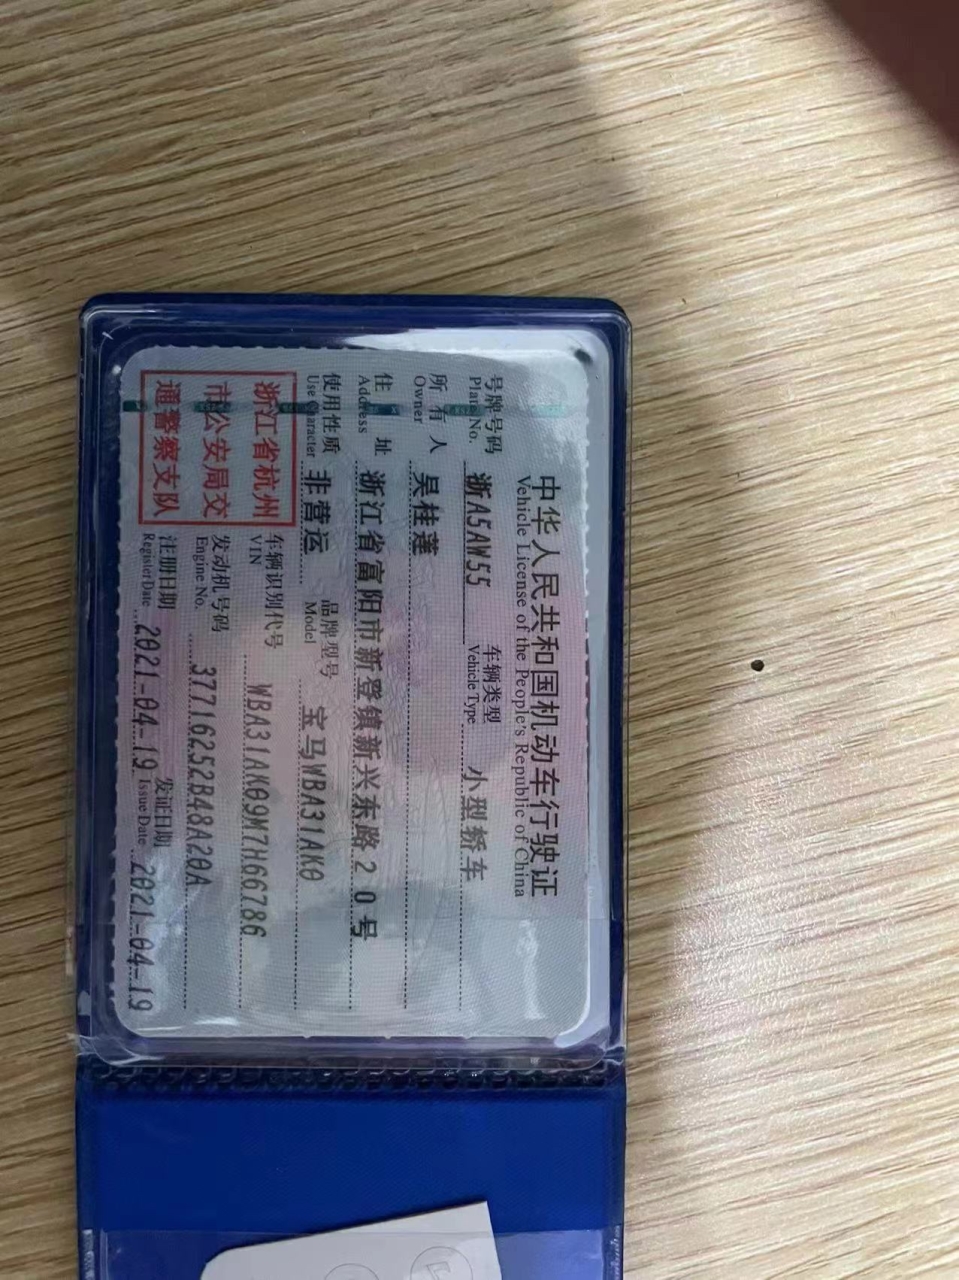 中华人民共和国机动车行驶证
Vehicle License of the People's Republic of China
号牌号码 浙A5AW55 车辆类型 小型轿车
Plate No. Vehicle Type
所有人 吴桂莲
Owner
住址 浙江省富阳市新登镇新兴东路20号
Address
使用性质 非营运 品牌型号 宝马WBA31AK0
Use Character Model
浙江省杭州
市公安局交
通警察支队
车辆识别代号 WBA31AK09M7H66786
VIN
发动机号码 37716252B48A20A
Engine No.
注册日期 2021-04-19 发证日期 2021-04-19
Register Date Issue Date